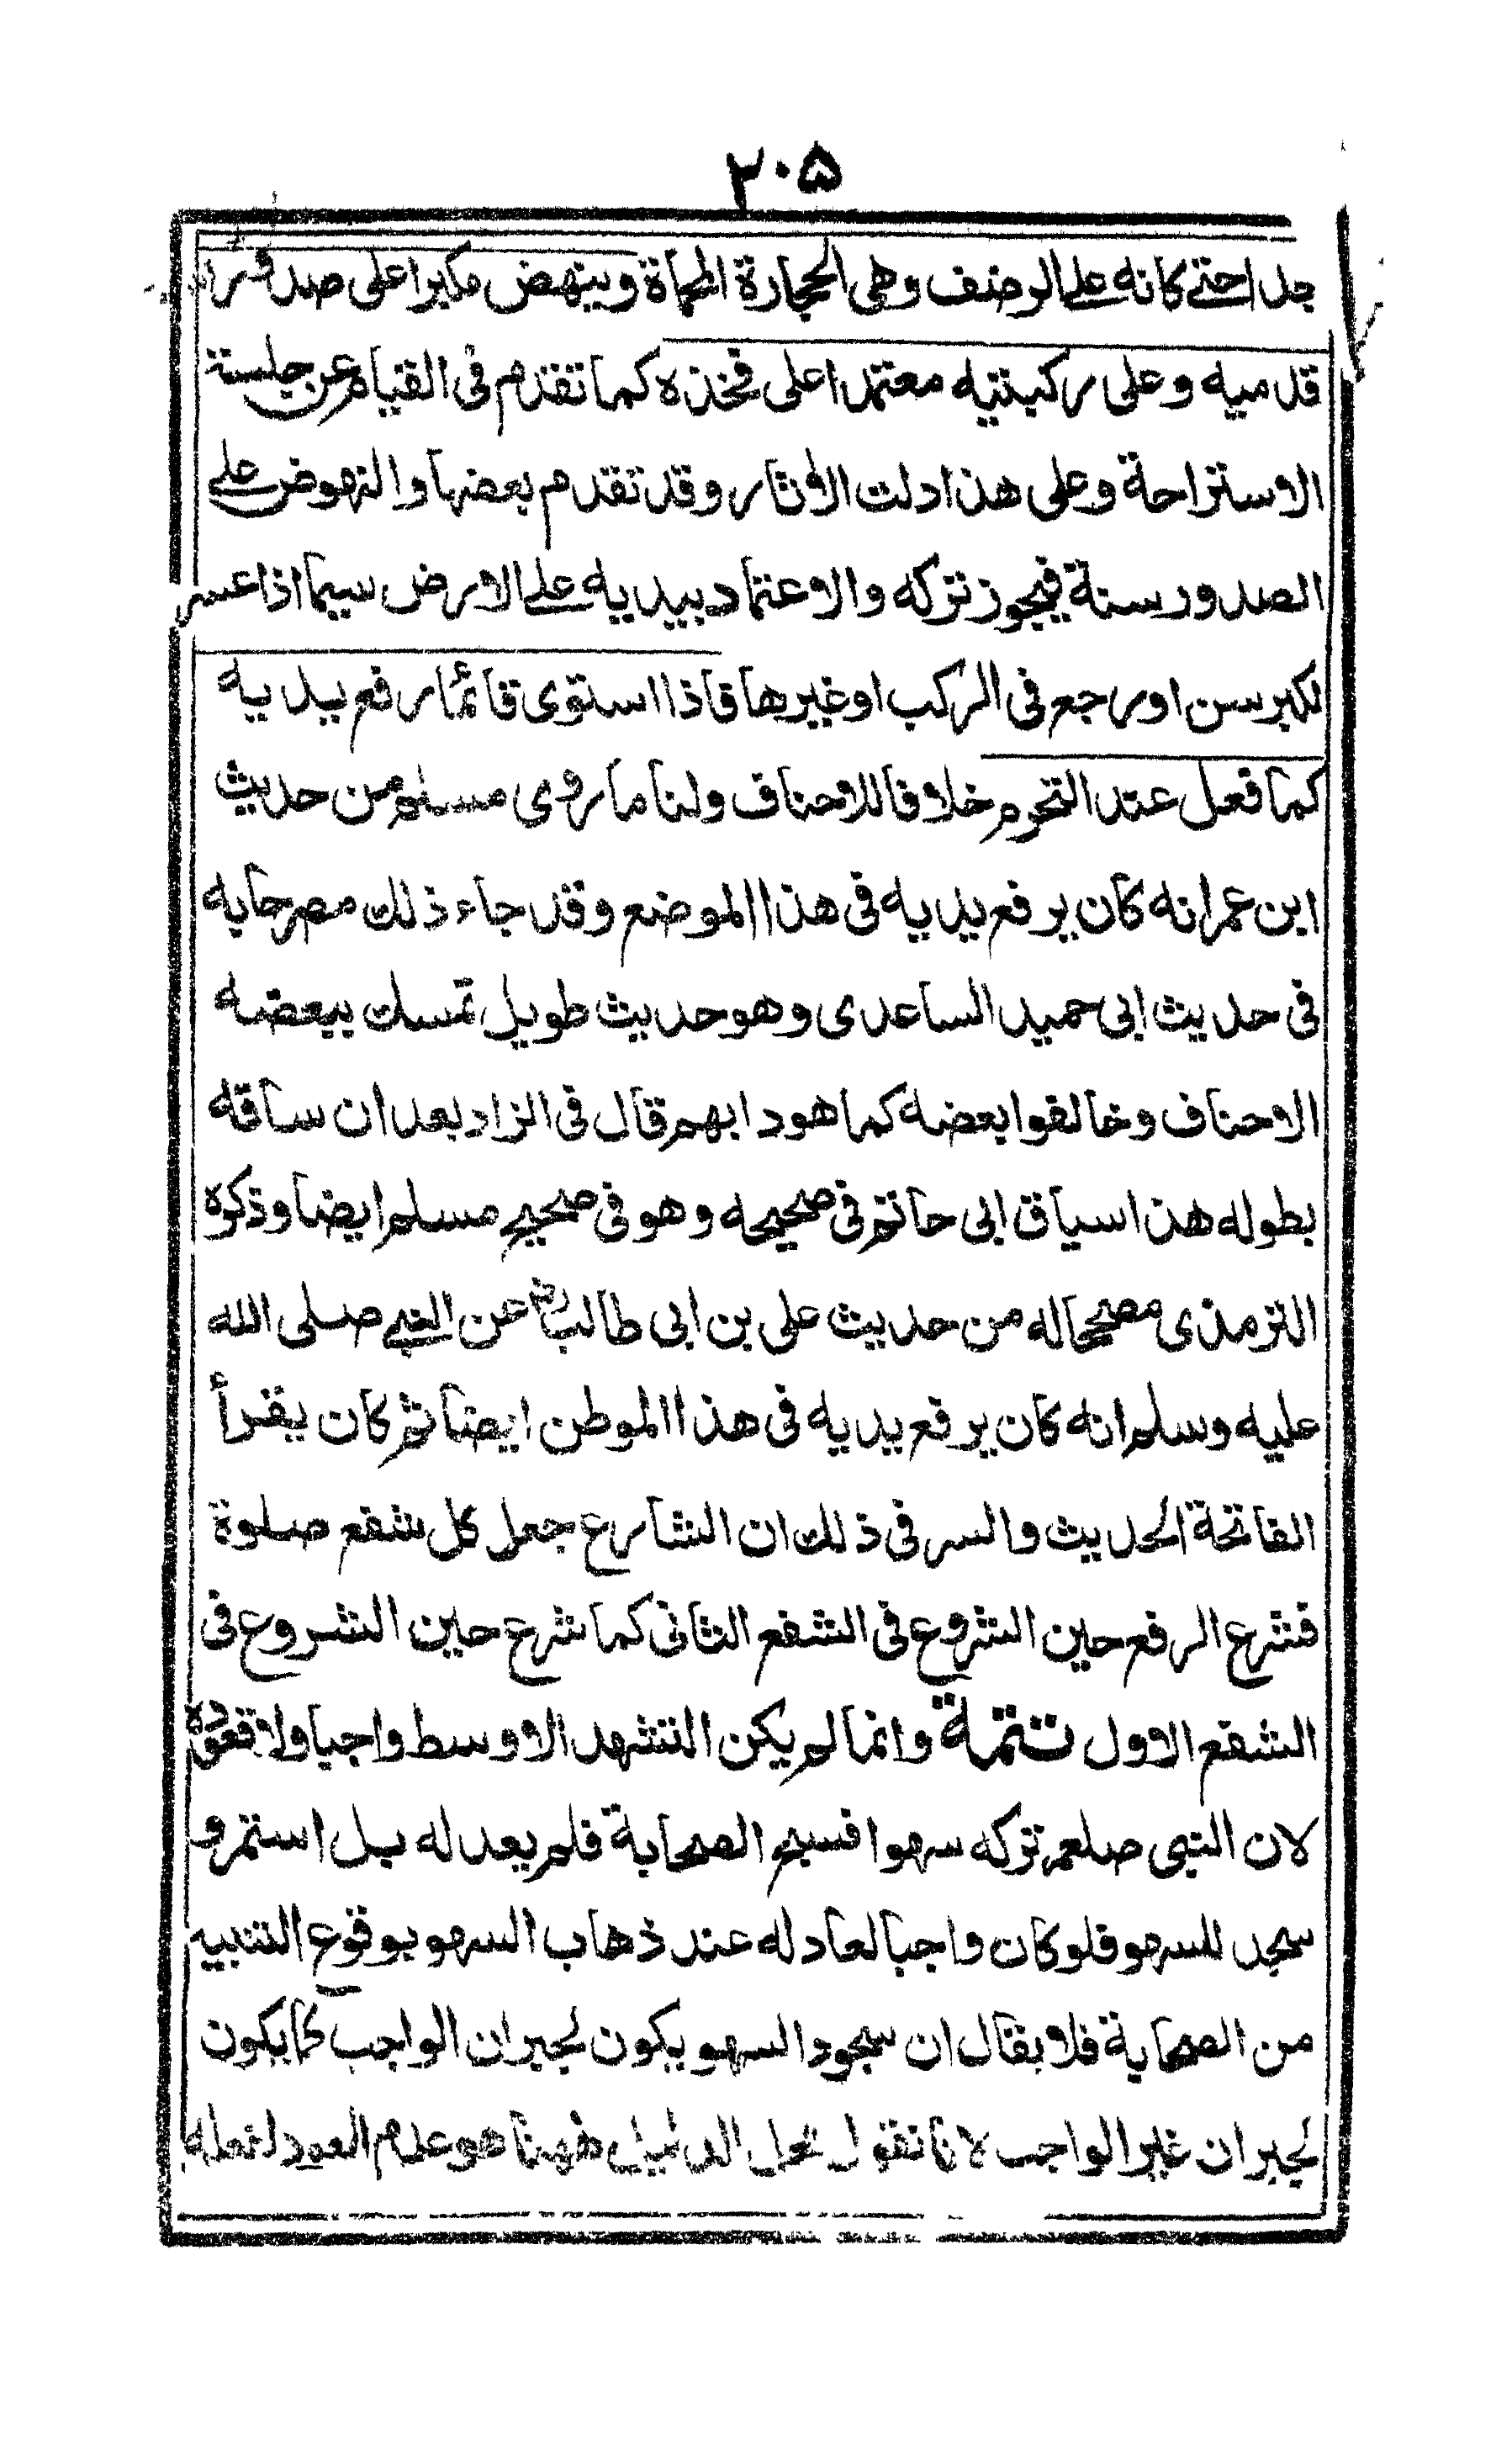 ۲۰۵
جدا حتى كانه على الرضف وهى الحجارة المحماة وينهض مكبرا على صدور
قدميه وعلى ركبتيه معتمدا على فخذه كما تقدم فى القيام عن جلسة
الاستراحة وعلى هذا دلت الاثار وقد تقدم بعضها والنهوض على
الصدور سنة فيجوز تركه والاعتماد بيديه على الارض سيما اذا عسر
لكبر سن او رجع فى الركب او غيرها فاذا استوى قائما رفع يديه
كما فعل عند التحرم خلافا للاحناف ولنا ما روى مسلم من حديث
ابن عمر انه كان يرفع يديه فى هذا الموضع وقد جاء ذلك مصرحا به
فى حديث ابى حميد الساعدى وهو حديث طويل تمسك ببعضه
الاحناف وخالفوا بعضه كما هو دابهم قال فى الزاد بعد ان ساقه
بطوله هذا سياق ابى حاتم فى صحيحه وهو فى صحيح مسلم ايضا وذكره
الترمذى مصححا له من حديث على بن ابى طالب رض عن النبى صلى الله
عليه وسلم انه كان يرفع يديه فى هذا الموطن ايضا ثم كان يقرأ
الفاتحة الحديث والسر فى ذلك ان الشارع جعل كل شفع صلوة
فشرع الرفع حين الشروع فى الشفع الثانى كما شرع حين الشروع فى
الشفع الاول تتمة وانما لم يكن التشهد الاوسط واجبا ولا قعوده
لان النبى صلعم تركه سهوا فسبح الصحابة فلم يعد له بل استمر و
سجد للسهو فلو كان واجبا لعاد له عند ذهاب السهو بوقوع التنبيه
من الصحابة فلا يقال ان سجود السهو يكون لجبران الواجب كما يكون
لجبران غير الواجب لانا نقول محل الدليل ههنا هو عدم العود لفعله